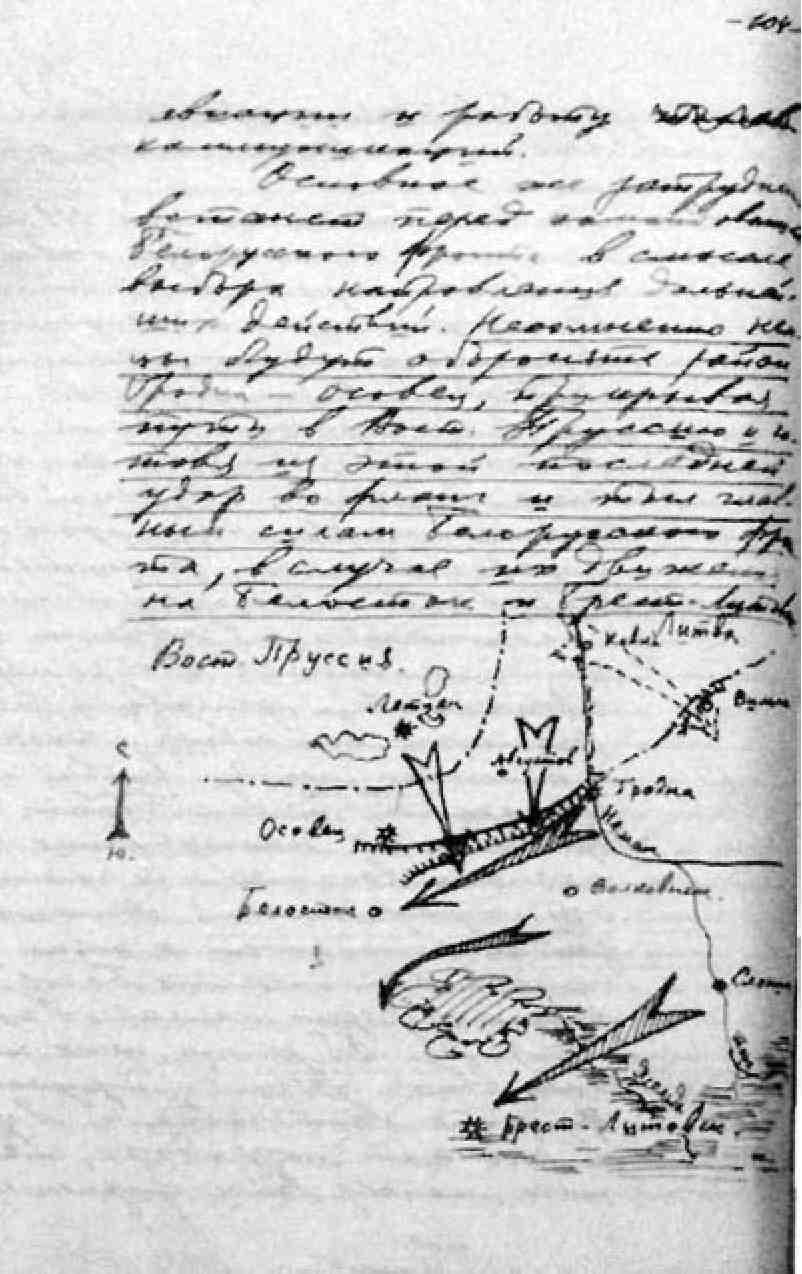 авиации и работу
коммуникаций.
Основное же затрудне
встанет перед
Белорусского фронта в смысле
выбора направления дальней-
ших действий. Несомненно нем-
цы будут оборонять район
Гродна — Осовец, прикрывая
пути в Вост. Пруссию и го-
товя из этой последней
удар во фланг и тыл глав-
ным силам Белорусского фро
та, в случае их движения
на Белосток и Брест-Литов
Вост. Пруссия.
Ковно
Литва
Летцен
Августов
Гродна
Неман
С
Ю.
Осовец
Белосток
Волковыск.
Слоним
Брест-Литовск.